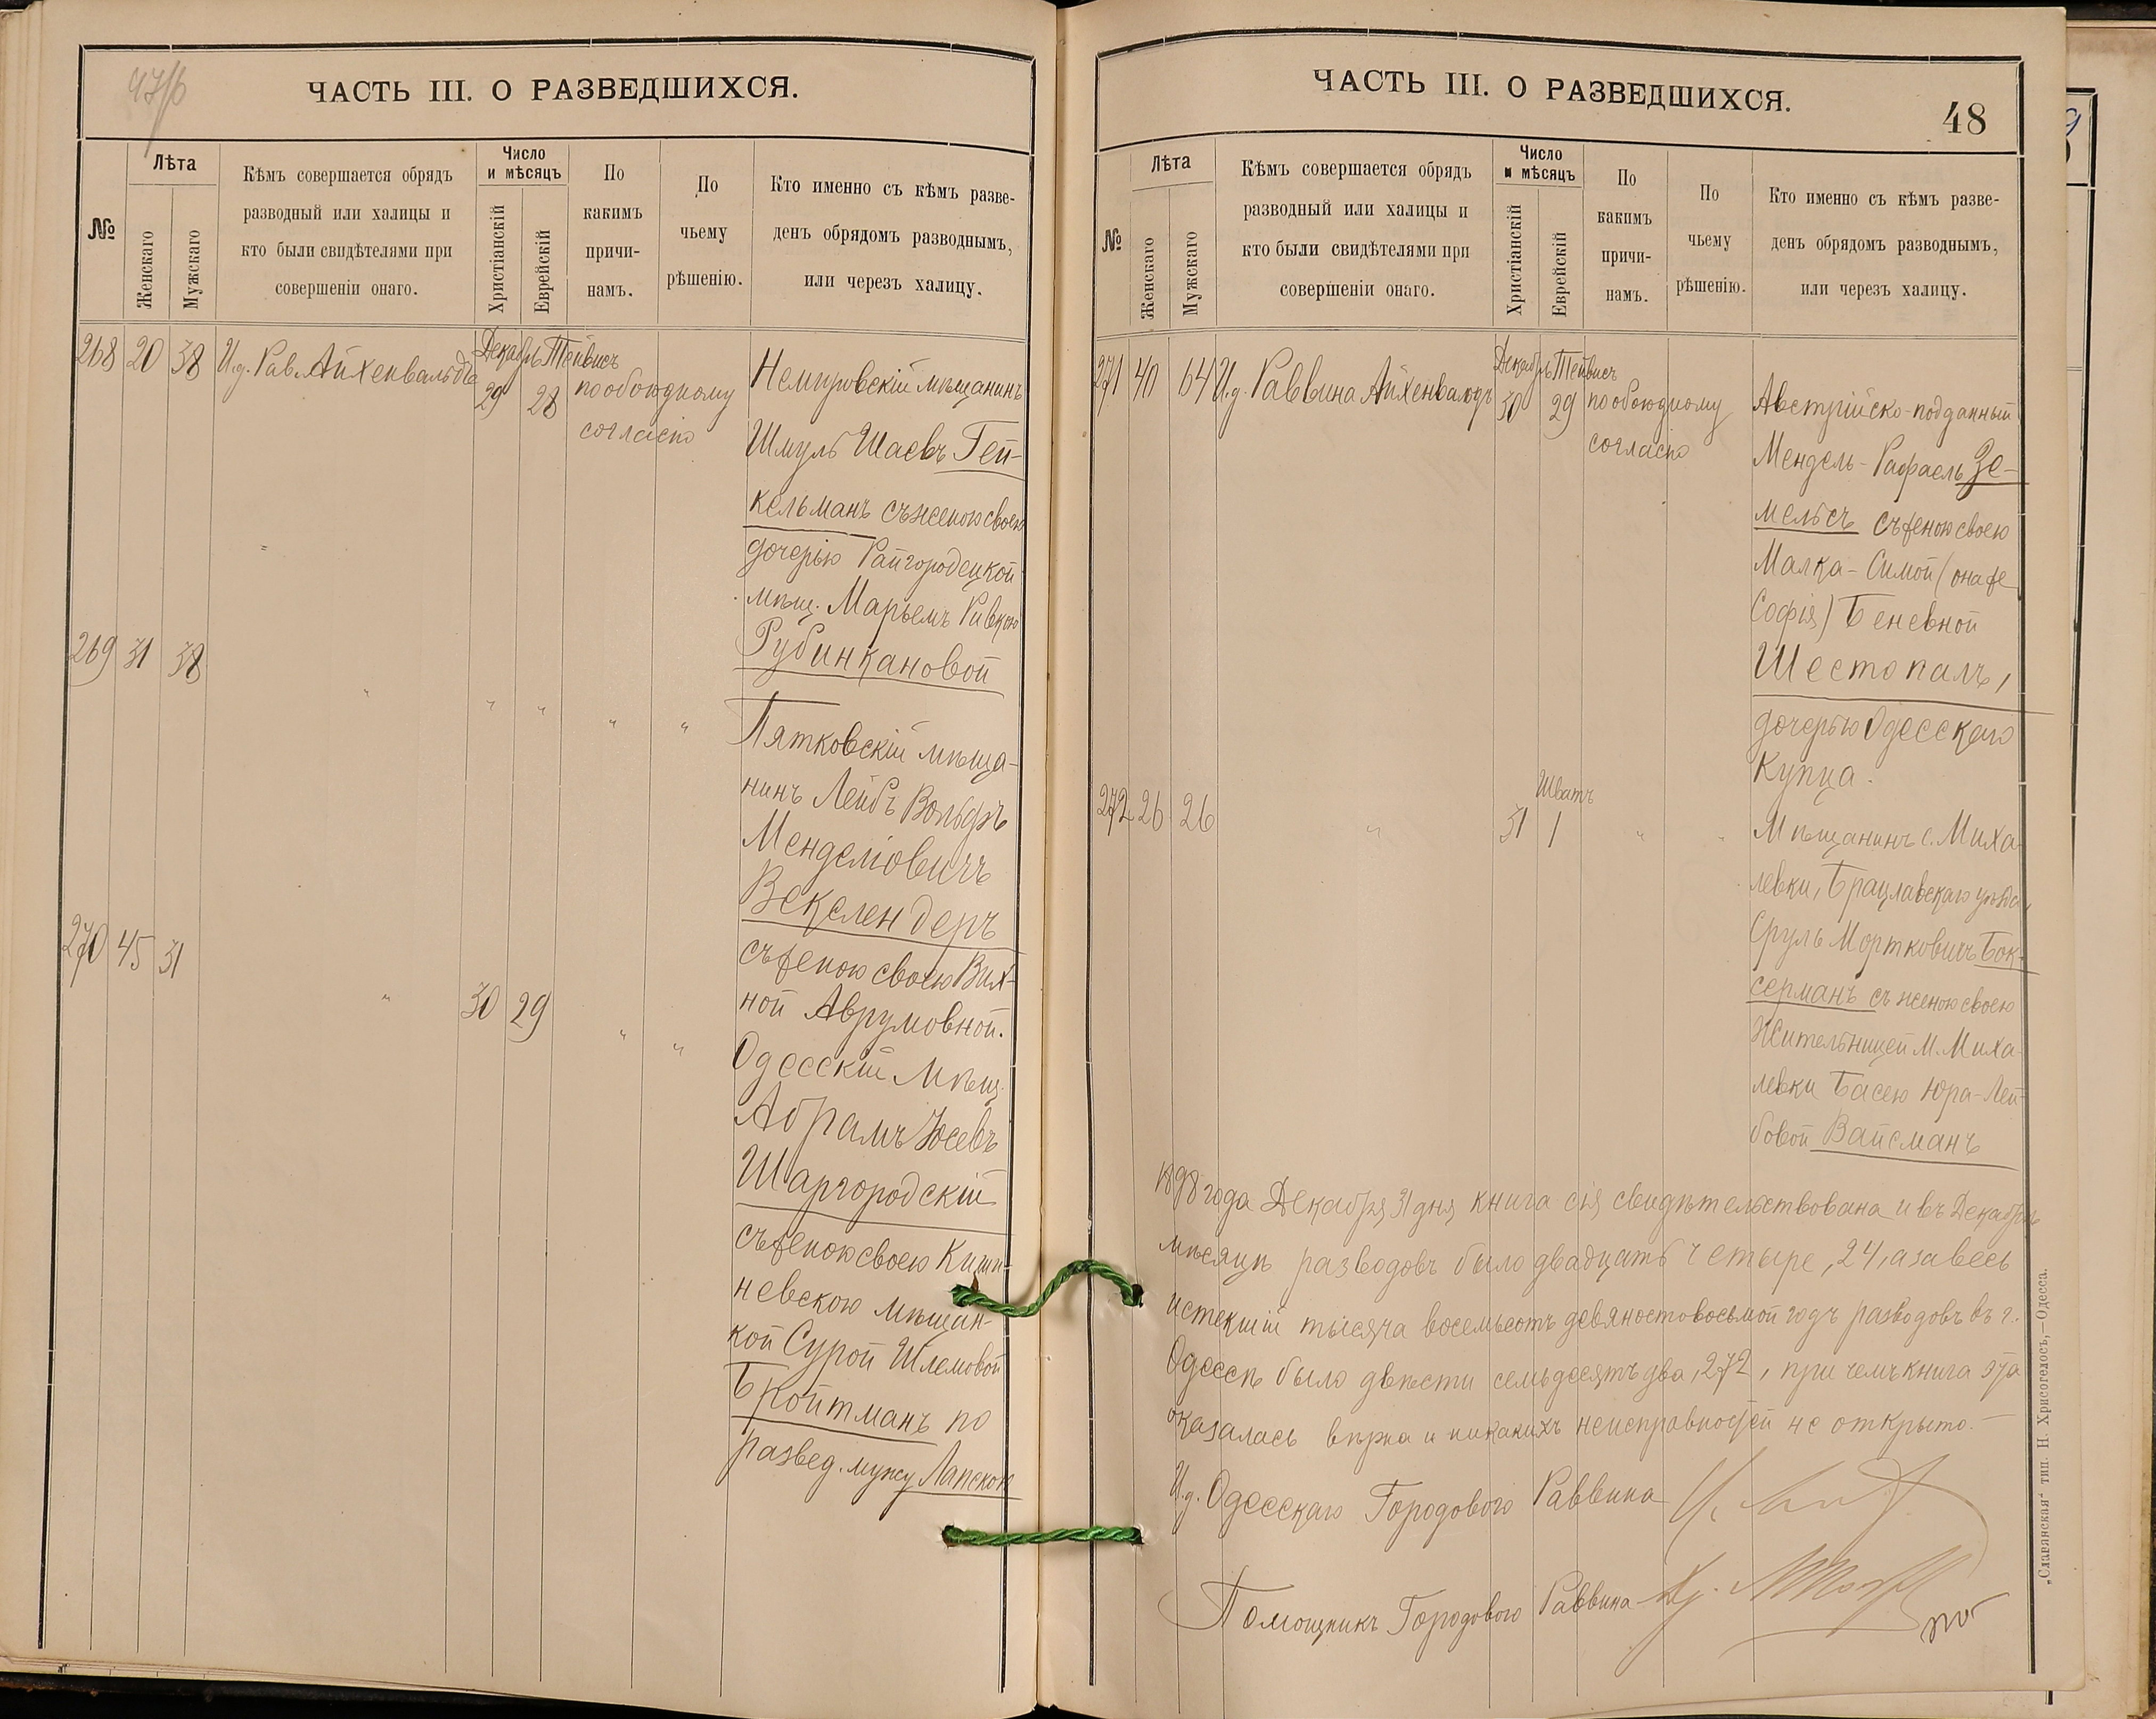 ЧАСТЬ III. О РАЗВЕДШИХСЯ.
№
Лѣта
Женскаго
Мужскаго
Кѣмъ совершается обрядъ
разводный или халицы и
кто были свидѣтелями при
совершеніи онаго.
Число
и мѣсяцъ
Христіанскій
Еврейскій
По
какимъ
причи-
намъ.
По
чьему
рѣшенію.
Кто именно съ кѣмъ разве-
денъ обрядомъ разводнымъ,
или черезъ халицу.
268 20 38 И.д. Рав. Айхенвальдъ
Декабрь Тейвисъ
29 28
по обоюдному
согласію
Немировскій мѣщанинъ
Шмуль Шаевъ Гей-
кельманъ съ женою своею
дочерію Райгородецкой
мѣщ. Марьемъ Ривкою
Рубинкановой
269 31 38 " " " " "
Пятковскій мѣща-
нинъ Лейбъ Вольфъ
Менделіовичъ
Векслендеръ
съ женою своею Вих-
ной Аврумовной.
270 45 31 " 30 29 " "
Одесскій мѣщ.
Абрамъ Іосевъ
Шаргородскій
съ женою своею Киши-
невскою мѣщан-
кой Сурой Шлемовой
Бройтманъ по
развед. мужу Лапскою
ЧАСТЬ III. О РАЗВЕДШИХСЯ.
48
№
Лѣта
Женскаго
Мужскаго
Кѣмъ совершается обрядъ
разводный или халицы и
кто были свидѣтелями при
совершеніи онаго.
Число
и мѣсяцъ
Христіанскій
Еврейскій
По
какимъ
причи-
намъ.
По
чьему
рѣшенію.
Кто именно съ кѣмъ разве-
денъ обрядомъ разводнымъ,
или черезъ халицу.
271 40 64 И.д. Раввина Айхенвальдъ
Декабрь Тейвисъ
30 29
по обоюдному
согласію
Австрійско-подданный
Мендель-Рафаель Зе-
мельсъ съ женою своею
Малка-Симой (она же
Софія) Беневной
Шестопалъ,
дочерью Одесскаго
Купца.
272 26 26 " 31
Шватъ
1 " "
Мѣщанинъ с. Миха-
левки, Брацлавскаго уѣзда,
Сруль Мортковичъ Бок-
серманъ съ женою своею
Жительницей м. Миха-
левки Басею Юра-Лей-
бовой Вайсманъ
1898 года Декабря 31 дня книга сія свидѣтельствована и въ Декабрѣ
мѣсяцѣ разводовъ было двадцать четыре, 24, а за весь
истекшій тысяча восемьсотъ девяносто восьмой годъ разводовъ въ г.
Одессѣ было двѣсти семьдесятъ два, 272, при чемъ книга эта
оказалась вѣрна и никакихъ неисправностей не открыто.—
И.д. Одесскаго Городового Раввина
Помощникъ Городового Раввина
„Славянская“ тип. Н. Хрисогелосъ,—Одесса.